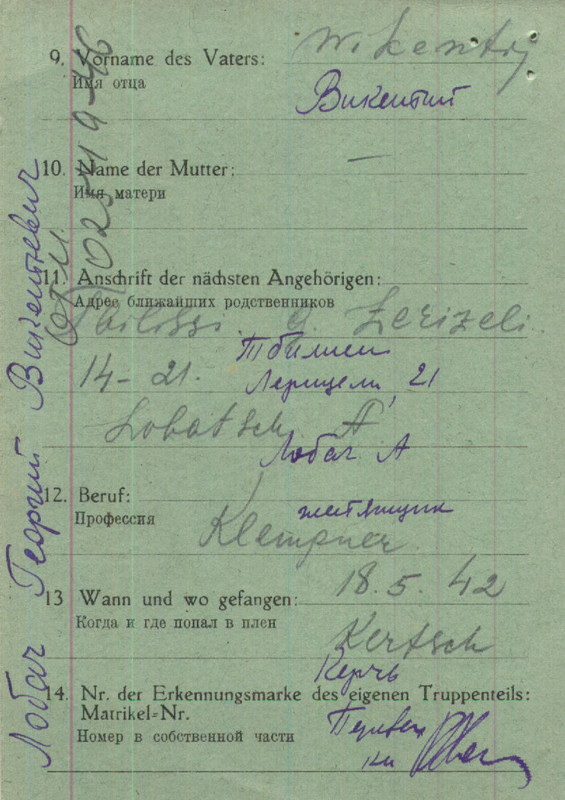 9. Vorname des Vaters: Wikentij
Имя отца
Викентий
10. Name der Mutter: —
Имя матери
11. Anschrift der nächsten Angehörigen:
Адрес ближайших родственников
Tbilissi. g. Lerizeli.
Тбилиси
14-21.
Лерицели, 21
Lobatsch A
Лобач А
12. Beruf:
жестянщик
Профессия
Klempner
18.5.42
13 Wann und wo gefangen:
Когда и где попал в плен
Kertsch
Керчь
14. Nr. der Erkennungsmarke des eigenen Truppenteils:
Matrikel-Nr.
Номер в собственной части
Лобач Георгий Викентьевич